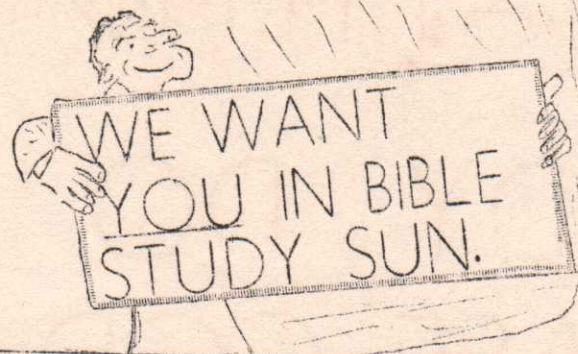 WE WANT
YOU IN BIBLE
STUDY SUN.